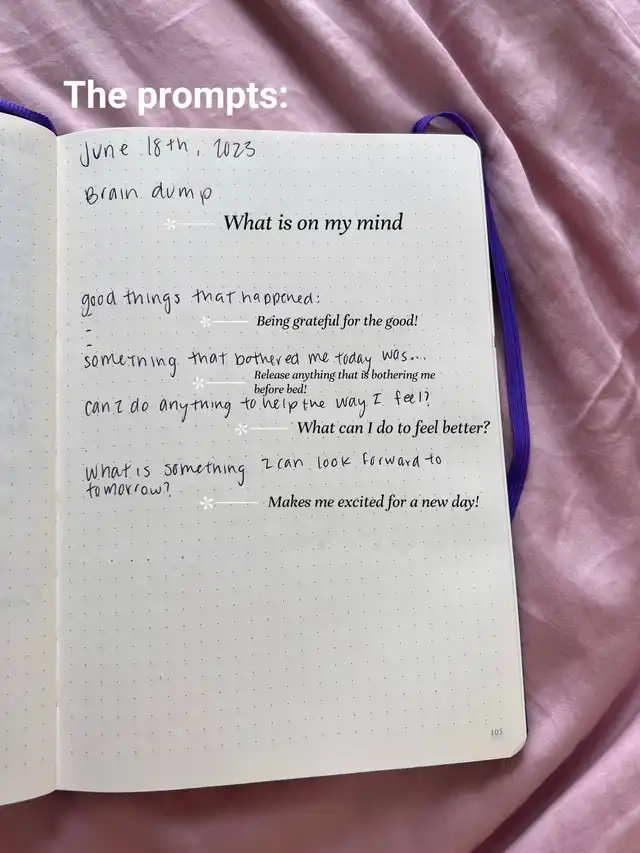 The prompts:
June 18th, 2023
Brain dump
What is on my mind
good things that happened:
Being grateful for the good!
-
-
something that bothered me today was...
Release anything that is bothering me
before bed!
can I do anything to help the way I feel?
What can I do to feel better?
What is something I can look forward to
tomorrow?
Makes me excited for a new day!
105